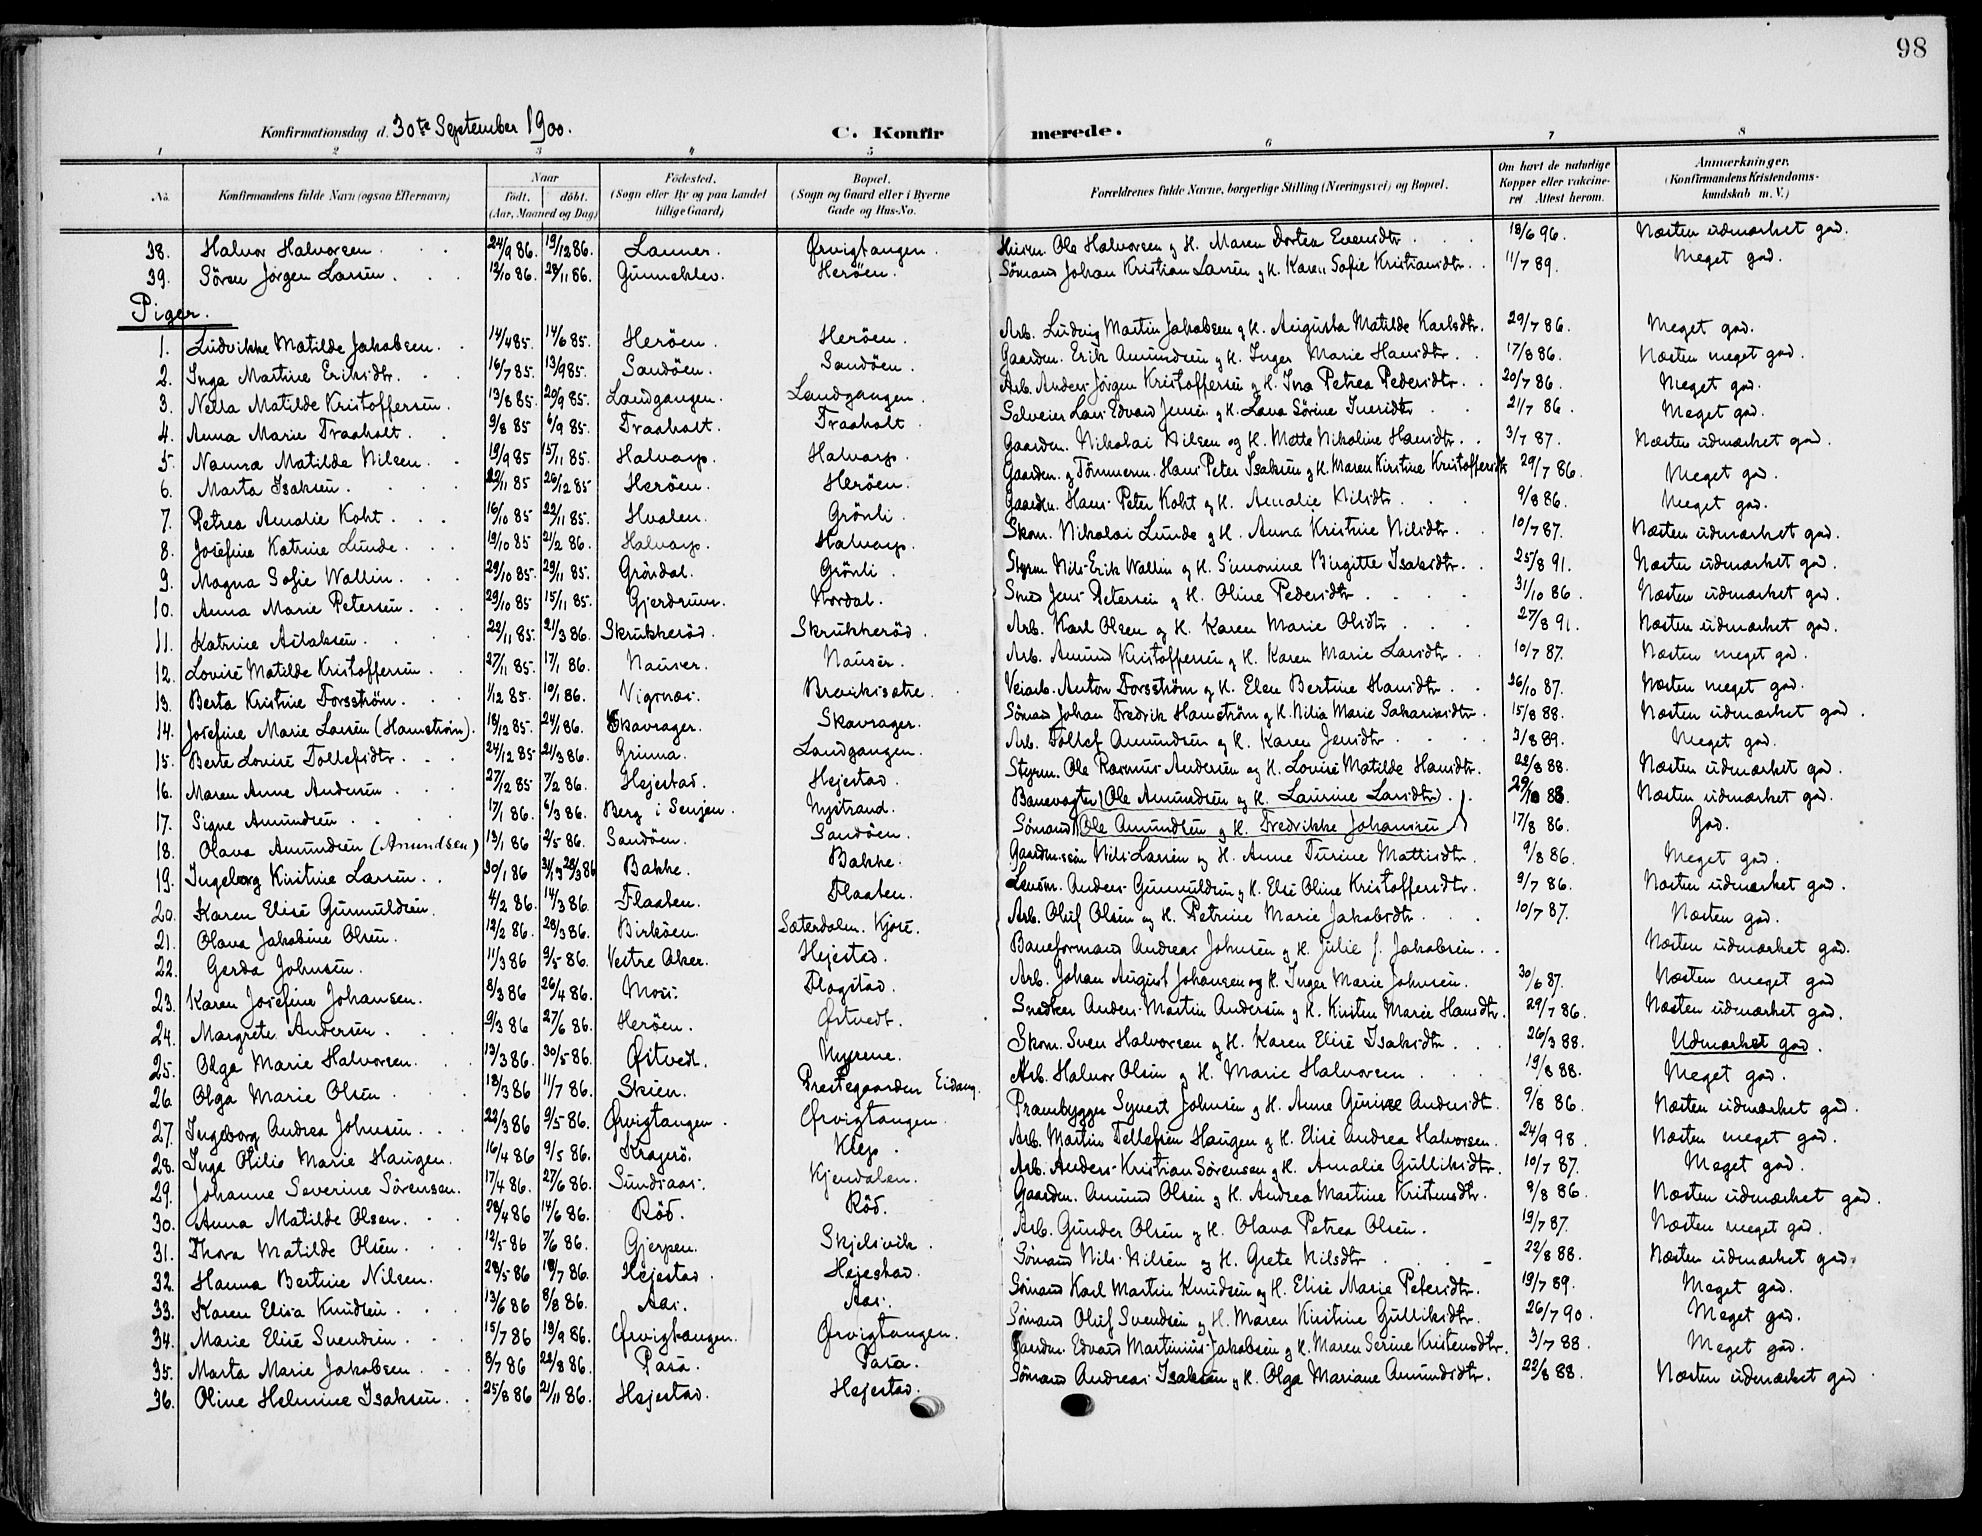 98
Konfirmationsdag d. 30te September 1900. C. Konfir merede.
1 2 3 4 5 6 7 8
No. Konfirmandens fulde Navn (ogsaa Efternavn) Naar født. døbt. (Aar, Maaned og Dag) Fødested. (Sogn eller By og paa Landet tillige Gaard) Bopæl. (Sogn og Gaard eller i Byerne Gade og Hus-No. Forældrenes fulde Navne, borgerlige Stilling (Næringsvei) og Bopæl. Om havt de naturlige Kopper eller vakcineret Attest herom. Anmærkninger. (Konfirmandens Kristendomskundskab m. V.)
38. Halvor Halvorsen. 24/9 86. 19/12 86. Lanner. Ørvigtangen. Ole Halvorsen og H. Maren Dortea Evensdtr. 18/6 96. Næsten udmærket god.
39. Sören Jörgen Larsen. 12/10 86. 28/11 86. Gunneklev. Heröen. Sömand Johan Kristian Larsen og H. Karen Sofie Kristiansdtr. 11/7 89. Meget god.
Piger.
1. Ludvikke Matilde Jakobsen. 14/4 85. 14/6 85. Heröen. Heröen. Arb. Ludvig Martin Jakobsen og H. Augusta Matilde Karlsdtr. 29/7 86. Meget god.
2. Inga Martine Eriksdtr. 16/7 85. 13/9 85. Sandöen. Sandöen. Gaardm. Erik Amundsen og H. Inger Marie Hansdtr. 17/8 86. Næsten meget god.
3. Nella Matilde Kristoffersen. 13/8 85. 20/9 85. Landgangen. Landgangen. Arb. Anders Jörgen Kristoffersen og H. Ina Petrea Pedersdtr. 20/7 86. Meget god.
4. Anna Marie Traaholt. 9/8 85 6/9 85. Traaholt. Traaholt. Selveier Lars Edvard Jensen og H. Lava Sörine Iversdtr. 21/7 86. Meget god.
5. Nanna Matilde Nilsen. 19/9 85 15/11 85. Halvarp. Halvarp. Gaardm. Nikolai Nilsen og H. Mette Nikoline Hansdtr. 3/7 87. Næsten udmærket god.
6. Marta Isaksen. 22/11 85 26/12 85 Heröen. Heröen. Gaardm. og Tömmerm. Hans Peter Isaksen og H. Maren Kirstine Kristoffersdtr. 29/7 86. Meget god.
7. Petrea Amalie Koht. 16/10 85 22/11 85. Hvalen. Grönli. Gaardm. Hans Peter Koht og H. Amalie Nilsdtr. 9/8 86. Meget god.
8. Josefine Katrine Lunde. 19/10 85 21/2 86. Halvarp. Halvarp. Skom. Nikolai Lunde og H. Anna Kristine Nilsdtr. 10/7 87. Næsten udmærket god.
9. Magna Sofie Wallin. 29/10 85. 29/11 85. Gröndal. Grönli. Styrm. Nils Erik Wallin og H. Simonine Birgitte Isaksdtr. 25/8 91. Næsten udmærket god.
10. Anna Marie Petersen. 29/10 85 15/11 85. Gjerdrum. Nordal. Smed Jens Petersen og H. Oline Pedersdtr. 31/10 86. Næsten udmærket god.
11. Katrine Aslaksen. 22/11 85. 21/3 86. Skrukkeröd. Skrukkeröd. Arb. Karl Olsen og H. Karen Marie Olsdtr. 27/8 91. Næsten udmærket god.
12. Lovise Matilde Kristoffersen. 27/11 85. 17/1 86. Nauser. Nauser. Arb. Amund Kristoffersen og H. Karen Marie Larsdtr. 10/7 87. Næsten meget god.
13. Berta Kristine Forsström. 1/12 85. 10/1 86. Vigrnæs. Breviksætre. Veiarb. Anton Forsström og H. Elen Bertine Hansdtr. 26/10 87. Næsten meget god.
14. Josefine Marie Larsen (Hamström). 18/12 85. 24/1 86. Skavrager. Skavrager. Sömand Johan Fredrik Hamström og H. Nilia Marie Sakariasdtr. 15/8 88. Næsten udmærket god.
15. Berte Lovise Tollefsdtr. 24/12 85 21/3 86. Grinna. Landgangen. Arb. Tollef Amundsen og H. Karen Jensdtr. 3/8 89. Meget god.
16. Maren Anne Andersen. 27/12 85 7/2 86. Hejestad. Hejestad. Styrm. Ole Rasmus Andersen og H. Lovise Matilde Hansdtr. 22/8 88. Næsten udmærket god.
17. Signe Amundsen. 17/1 86. 6/3 86. Berg i Senjen. Nystrand. Banevogter (Ole Amundsen og H. Laurine Larsdtr.) 29/10 88. Næsten udmærket god.
18. Olava Amundsen (Amundsen) 13/1 86 2/5 86. Sandöen. Sandöen. Sömand (Ole Amundsen og H. Fredrikke Johansen) 17/8 86. God.
19. Ingeborg Kirstine Larsen. 30/1 86 28/3 86 Bakke. Bakke. Gaardm.sön Nils Larsen og H. Anne Turine Mattisdtr. 9/8 86. Meget god.
20. Karen Elise Gunnuldsen. 4/2 86. 14/3 86. Flaaten. Flaaten. Anders Gunnuldsen og H. Else Oline Kristoffersdtr. 9/7 86. Næsten udmærket god.
21. Olava Jakobine Olsen. 12/2 86. 28/3 86. Birköen. Sæterdalen. Kjose. Arb. Oluf Olsen og H. Petrine Marie Jakobsdtr. 10/7 87. Næsten god.
22. Gerda Johnsen. 11/3 86 9/5 86. Vestre Aker. Hejestad. Baneformand Andreas Johnsen og H. Julie f. Jakobsen. Næsten udmærket god.
23. Karen Josefine Johansen. 8/3 86 26/4 86. Moss. Flogstad. Arb. Johan August Johansen og H. Inger Marie Johnsen. 30/6 87. Næsten meget god
24. Margrete Andersen. 9/3 86 27/6 86. Heröen. Østvedt. Snedker Anders Martin Andersen og H. Kirsten Marie Hansdtr. 29/7 86. Næsten udmærket god.
25. Olga Marie Halvorsen. 13/3 86. 30/5 86. Østvedt. Nyrene. Skom. Sven Halvorsen og H. Karen Elise Isaksdtr. 26/3 88. Udmærket god.
26. Olga Marie Olsen. 18/3 86 11/7 86. Skien. Præstegaarden Eidang. Arb. Halvor Olsen og H. Marie Halvorsen. 19/8 88. Meget god.
27. Ingeborg Andrea Johnsen. 22/3 86 9/5 86. Ørvigtangen. Ørvigtangen. Prambygger Synert Johnsen og H. Anne Gurine Andersdt. 9/8 86. Næsten udmærket god.
28. Inga Otilie Marie Haugen. 16/4 86 9/5 86. Kragerö. Klep. Arb. Martin Tellefsen Haugen og H. Elise Andrea Halvorsen. 24/9 98. Næsten meget god.
29. Johanne Severine Sörensen. 17/4 86. 27/6 86. Sundsaas. Kjendalen. Arb. Anders Kristian Sörensen og H. Amalie Gulliksdtr. 10/7 87. Meget god.
30. Anna Matilde Olsen. 28/4 86 14/6 86. Röd. Röd. Gaardm. Amund Olsen og H. Andrea Martine Kristensdtr. 9/8 86. Næsten udmærket god.
31. Thora Matilde Olsen. 12/5 86 7/6 86. Gjerpen. Skjelsvik. Arb. Gunder Olsen og H. Olava Petrea Olsen. 19/7 87. Næsten meget god.
32. Hanna Bertine Nilsen. 28/5 86 18/7 86. Hejestad. Hejestad. Sömand Nils Nilsen og H. Grete Nilsdtr. 22/8 88. Næsten udmærket god.
33. Karen Elisa Knudsen. 13/6 86 8/8 86. Aas. Aas. Sömand Karl Martin Knudsen og H. Elise Marie Petersdtr. 19/7 89. Meget god.
34. Marie Elise Svendsen. 15/7 86 19/9 86. Ørvigtangen. Ørvigtangen. Sömand Oluf Svendsen og H. Maren Kirstine Gulliksdtr. 26/7 90. Meget god.
35. Marta Marie Jakobsen. 8/7 86 22/8 86. Pasa. Pasa. Gaardm. Edvard Martinius Jakobsen og H. Maren Serine Kristensdtr. 3/7 88. Meget god.
36. Oline Helmine Isaksen. 25/8 86 21/11 86. Hejestad. Hejestad. Sömand Andreas Isaksen og H. Olga Mariane Amundsdtr. 22/8 88. Næsten udmærket god